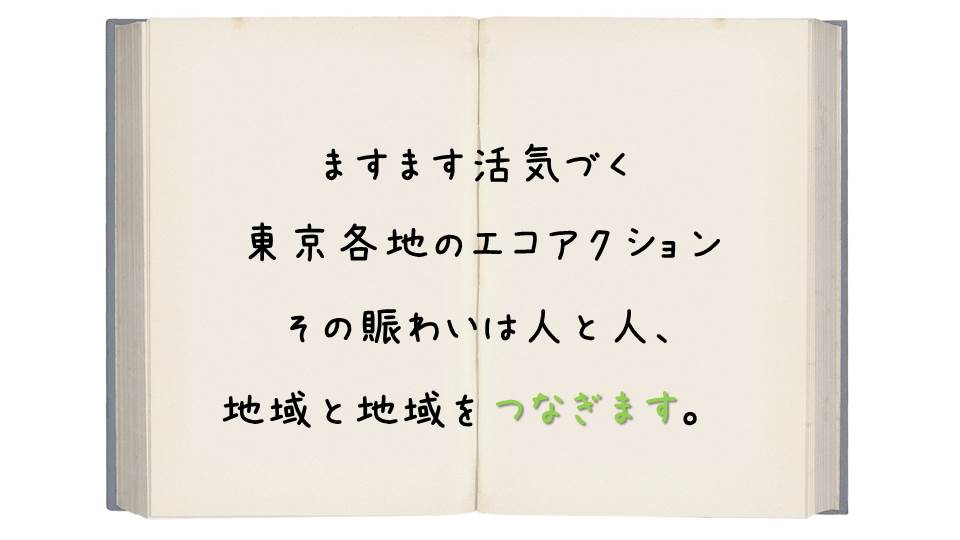 ますます活気づく
東京各地のエコアクション
その賑わいは人と人、
地域と地域をつなぎます。